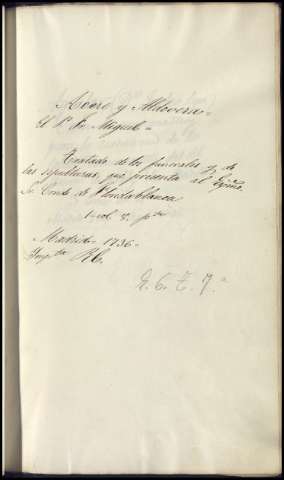 Acero y Aldovera.
El P. F. Miguel.
Tratado de los funerales y de
las sepulturas, que presenta al Exmo.
Sr. Conde de Floridablanca
1 vol. 8. pta
Madrid. 1736.
Impta Rl.
E. 6. T. 7.a